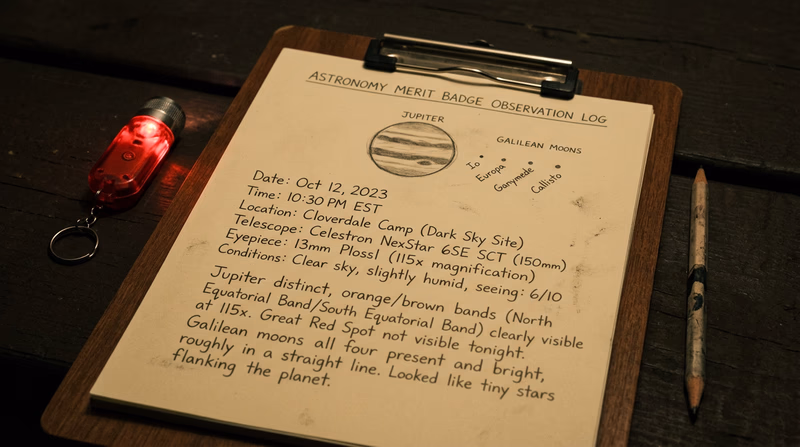 ASTRONOMY MERIT BADGE OBSERVATION LOG
JUPITER
GALILEAN MOONS
Io
Europa
Ganymede
Callisto
Date: Oct 12, 2023
Time: 10:30 PM EST
Location: Cloverdale Camp (Dark Sky Site)
Telescope: Celestron NexStar 6SE SCT (150mm)
Eyepiece: 13mm Plossl (115x magnification)
Conditions: Clear sky, slightly humid, seeing: 6/10
Jupiter distinct, orange/brown bands (North
Equatorial Band/South Equatorial Band) clearly visible
at 115x. Great Red Spot not visible tonight.
Galilean moons all four present and bright,
roughly in a straight line. Looked like tiny stars
flanking the planet.